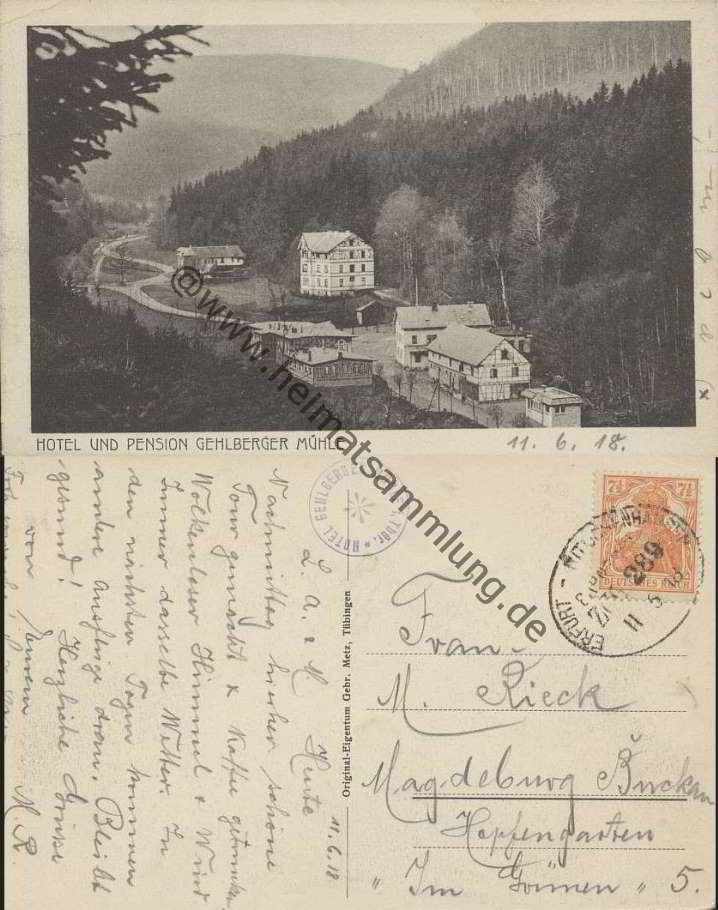 HOTEL UND PENSION GEHLBERGER MÜHLE
11. 6. 18.
@www.heimatsammlung.de
HOTEL GEHLBERGER
Thür.
DEUTSCHES REICH
7½ 7½
ERFURT - RITSCHENHAUSEN
ZUG 289
11 6 18
Original-Eigentum Gebr. Metz, Tübingen
11.6.18
L. A. & M. Heute
Nachmittag hierher schöne
Tour gemacht & Kaffee getrunken
Wolkenloser Himmel & Wind
Immer dasselbe Wetter. In
den nächsten Tagen kommen
andere Ausflüge dran. Bleibt
gesund! Herzliche Grüße
von Eurem M. R
Frau
M. Rieck
Magdeburg Buckau
Hopfengarten
"Im Grünen" 5.